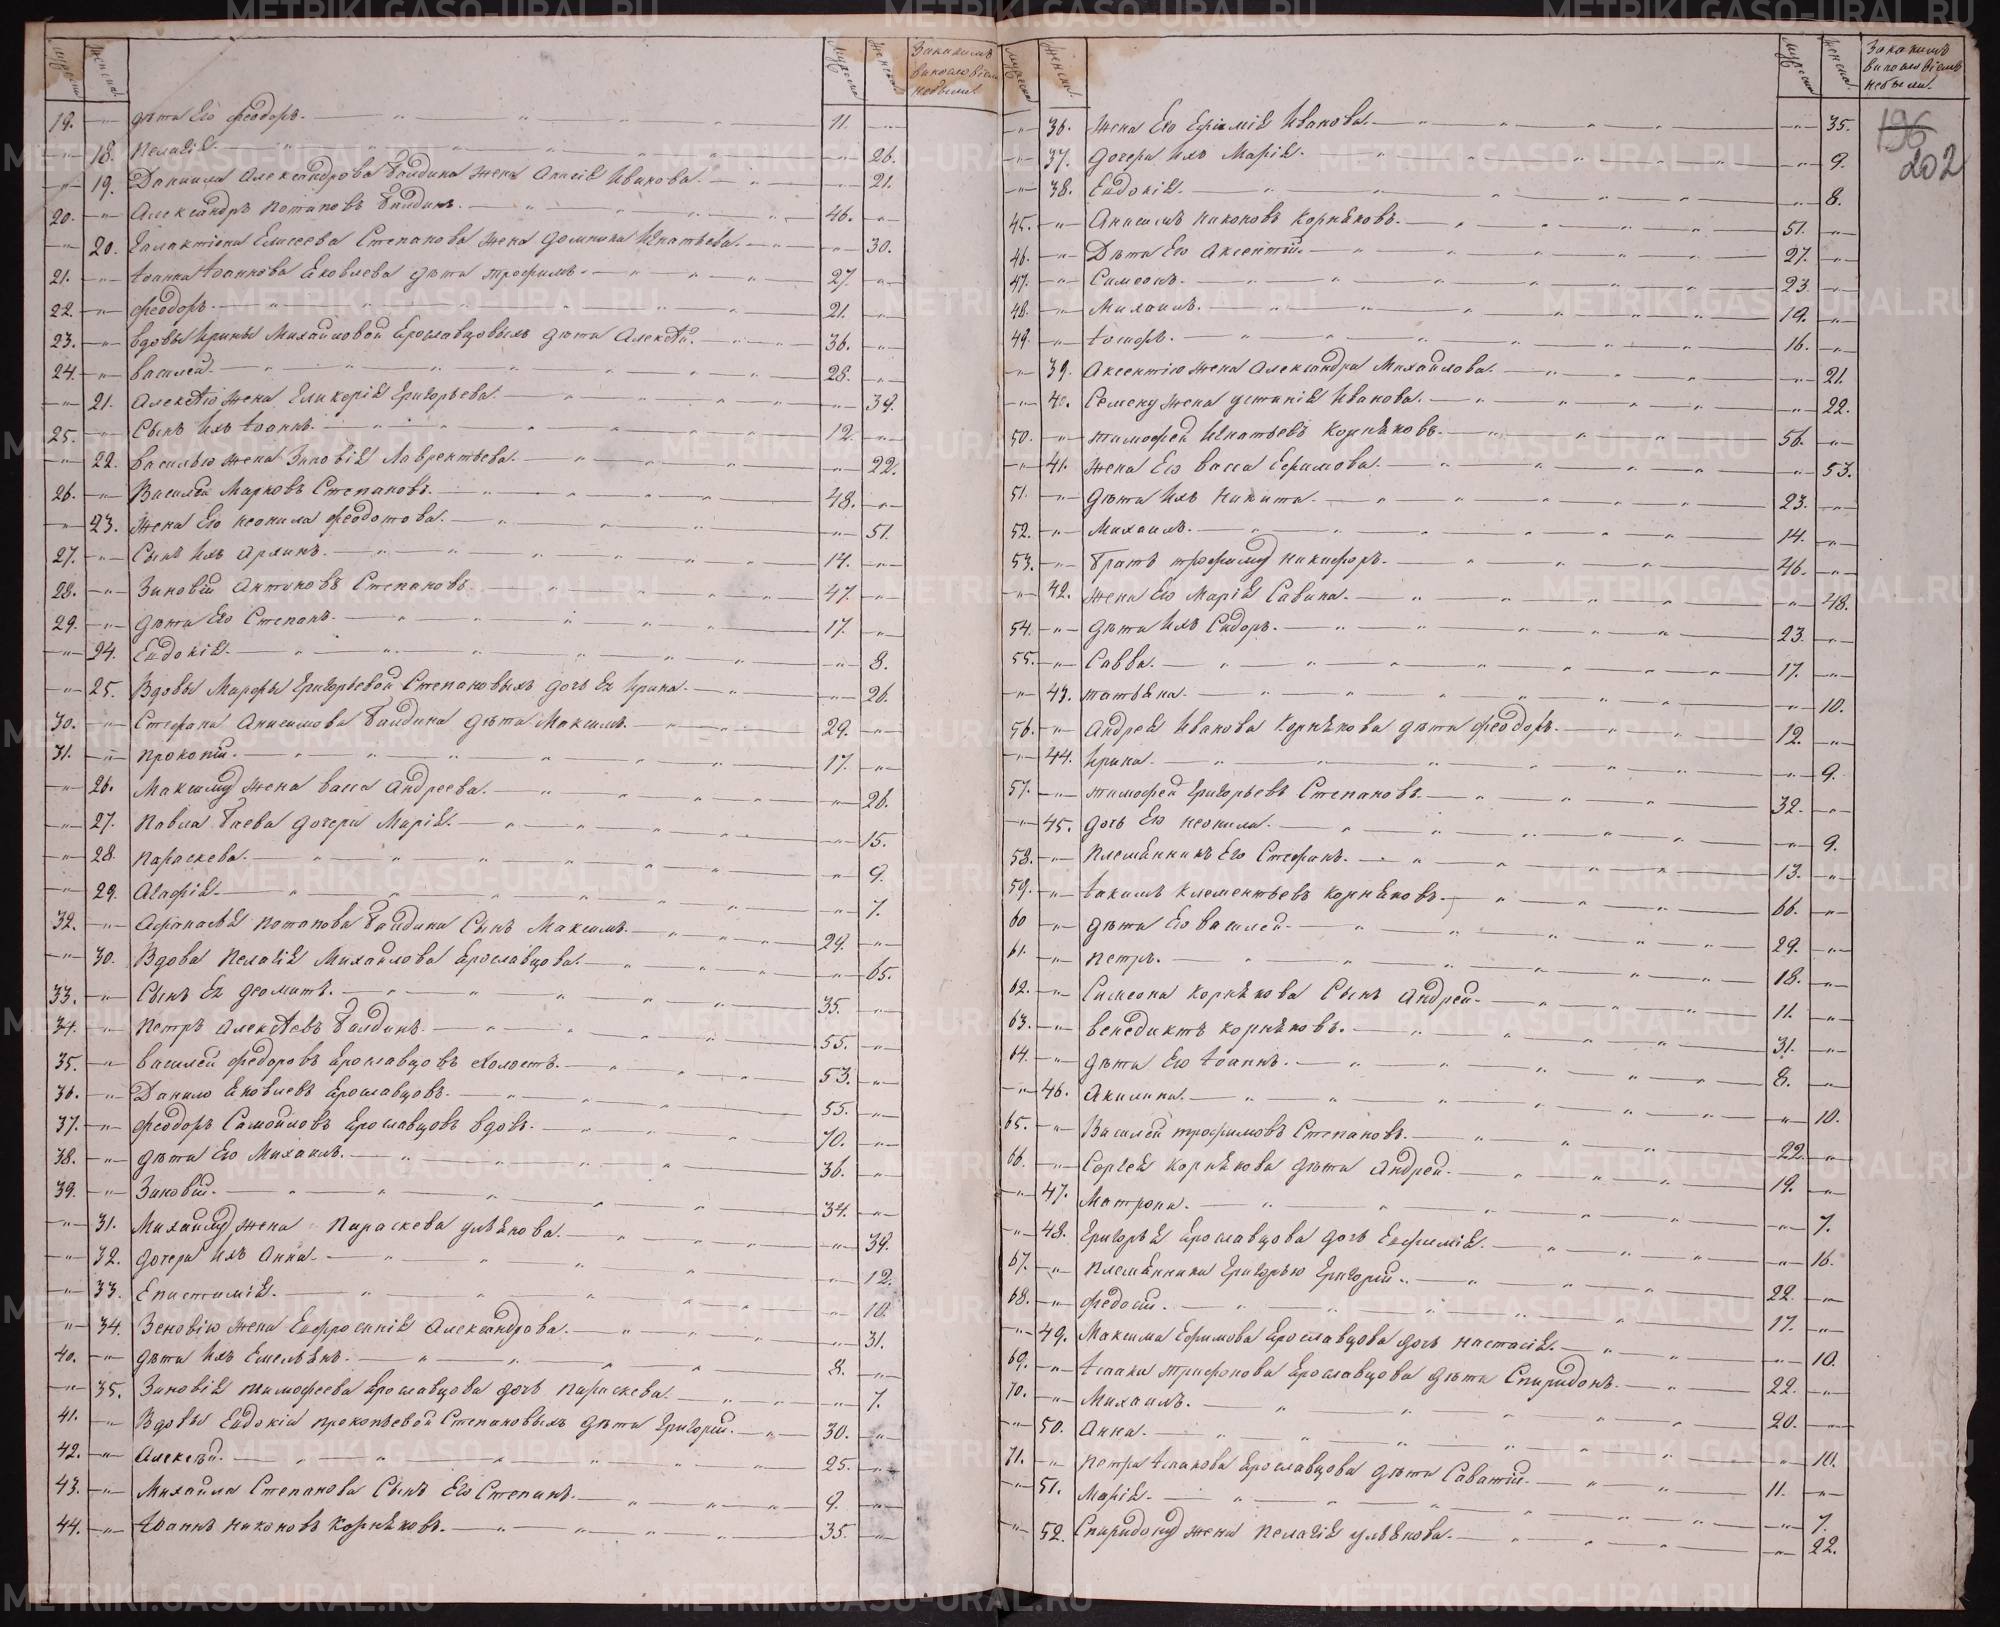 мужска женска мужска женска За какимъ винословіемъ не были
19. -"- дѣти Его Феодоръ. 11. -"-
-"- 18. Пелагіѣ. -"- 26.
-"- 19. Даниила Александрова Балдина жена Анисіѣ Иванова. -"- 21.
20. -"- Александръ Потаповъ Балдинъ. 46. -"-
-"- 20. Галактіона Елисеева Степанова жена Домника Игнатьева. -"- 30.
21. -"- Іоанна Іоаннова Яковлева дѣти Трофимъ. 27. -"-
22. -"- Феодоръ. 21. -"-
23. -"- вдовы Ирины Михайловой Ярославцовыхъ дѣти Алексѣй. 36. -"-
24. -"- Василей. 28. -"-
-"- 21. Алексѣю жена Гликеріѣ Григорьева. -"- 39.
25. -"- Сынъ Ихъ Іоаннъ. 12. -"-
-"- 22. Василью жена Зиновіѣ Лаврентьева. -"- 22.
26. -"- Василей Марковъ Степановъ. 48. -"-
-"- 23. Жена Его Неонила Феодотова. -"- 51.
27. -"- Сынъ Ихъ Архипъ. 14. -"-
28. -"- Зиновій Антиповъ Степановъ. 47. -"-
29. -"- дѣти Его Степанъ. 17. -"-
-"- 24. Евдокіѣ. -"- 8.
-"- 25. Вдовы Марфы Григорьевой Степановыхъ дочь Ея Ирина. -"- 26.
30. -"- Стефана Анисимова Балдина дѣти Максимъ. 29. -"-
31. -"- Прокопій. 17. -"-
-"- 26. Максиму жена Васса Андреева. -"- 26.
-"- 27. Павла Баева дочери Маріѣ. -"- 15.
-"- 28. Параскева. -"- 9.
-"- 29. Агафіѣ. -"- 7.
32. -"- Афанасьѣ Потапова Балдина Сынъ Максимъ. 29. -"-
-"- 30. Вдова Пелагіѣ Михайлова Ярославцова. -"- 65.
33. -"- Сынъ Ея Деомитъ. 35. -"-
34. -"- Петръ Алексѣевъ Балдинъ. 55. -"-
35. -"- Василей Федоровъ Ярославцовъ холостъ. 53. -"-
36. -"- Данило Яковлевъ Ярославцовъ. 55. -"-
37. -"- Феодоръ Самойловъ Ярославцовъ вдовъ. 70. -"-
38. -"- дѣти Его Михаилъ. 36. -"-
39. -"- Зиновій. 34. -"-
-"- 31. Михайлу жена Параскева Ульѣнова. -"- 39.
-"- 32. дочери Ихъ Анна. -"- 12.
-"- 33. Епистиміѣ. -"- 10.
-"- 34. Зеновію жена Евфросиніѣ Александрова. -"- 31.
40. -"- дѣти Ихъ Емельѣнъ. 8. -"-
-"- 35. Зиновіѣ Тимофеева Ярославцова дочь Параскева. -"- 7.
41. -"- Вдовы Евдокіи Прокопьевой Степановыхъ дѣти Григорій. 30. -"-
42. -"- Алексѣй. 25. -"-
43. -"- Михайла Степанова Сынъ Его Степанъ. 9. -"-
44. -"- Іоаннъ Никоновъ Корнѣковъ. 35. -"-
мужска женска мужска женска За какимъ винословіемъ не были.
196
202
-"- 36. Жена Его Ефиміѣ Иванова. -"- 35.
-"- 37. дочери Ихъ Маріѣ. -"- 9.
-"- 38. Евдокіѣ. -"- 8.
45. -"- Анисимъ Никоновъ Корнѣковъ. 51. -"-
46. -"- Дѣти Его Аксентій. 27. -"-
47. -"- Симеонъ. 23. -"-
48. -"- Михаилъ. 19. -"-
49. -"- Іосифъ. 16. -"-
-"- 39. Аксентію жена Александра Михайлова. -"- 21.
-"- 40. Семену жена Устиніѣ Иванова. -"- 22.
50. -"- Тимофей Игнатьевъ Корнѣковъ. 56. -"-
-"- 41. Жена Его Васса Ефимова. -"- 53.
51. -"- дѣти Ихъ Никита. 23. -"-
52. -"- Михаилъ. 14. -"-
53. -"- Братъ Трофиму Никифоръ. 46. -"-
-"- 42. Жена Его Маріѣ Савина. -"- 48.
54. -"- дѣти Ихъ Сидоръ. 23. -"-
55. -"- Савва. 17. -"-
-"- 43. Татьѣна. -"- 10.
56. -"- Андреѣ Иванова Корнѣкова дѣти Феодоръ. 12. -"-
-"- 44. Ирина. -"- 9.
57. -"- Тимофей Григорьевъ Степановъ. 32. -"-
-"- 45. дочь Его Неонила. -"- 9.
58. -"- Племѣнникъ Его Стефанъ. 13. -"-
59. -"- Іакимъ Клементьевъ Корнѣковъ. 66. -"-
60 -"- дѣти Его Василей. 29. -"-
61. -"- Петръ. 18. -"-
62. -"- Симеона Корнѣкова Сынъ Андрей. 11. -"-
63. -"- Венедиктъ Корнѣковъ. 31. -"-
64. -"- дѣти Его Іоаннъ. 8. -"-
-"- 46. Акилина. -"- 10.
65. -"- Василей Трофимовъ Степановъ. 22. -"-
66. -"- Сергеѣ Корнѣкова дѣти Андрей. 19. -"-
-"- 47. Матрона. -"- 7.
-"- 48. Григорьѣ Ярославцова дочь Евфиміѣ. -"- 16.
67. -"- Племѣнники Григорью Григорій. 22. -"-
68. -"- Федосій. 17. -"-
-"- 49. Максима Ефимова Ярославцова дочь Настасіѣ. -"- 10.
69. -"- Ісаака Трифонова Ярославцова дѣти Спиридонъ. 22. -"-
70. -"- Михаилъ. 20. -"-
-"- 50. Анна. -"- 10.
71. -"- Петра Ісаакова Ярославцова дѣти Саватій. 11. -"-
-"- 51. Маріѣ. -"- 7.
-"- 52. Спиридону жена Пелагіѣ Ульѣнова. -"- 22.